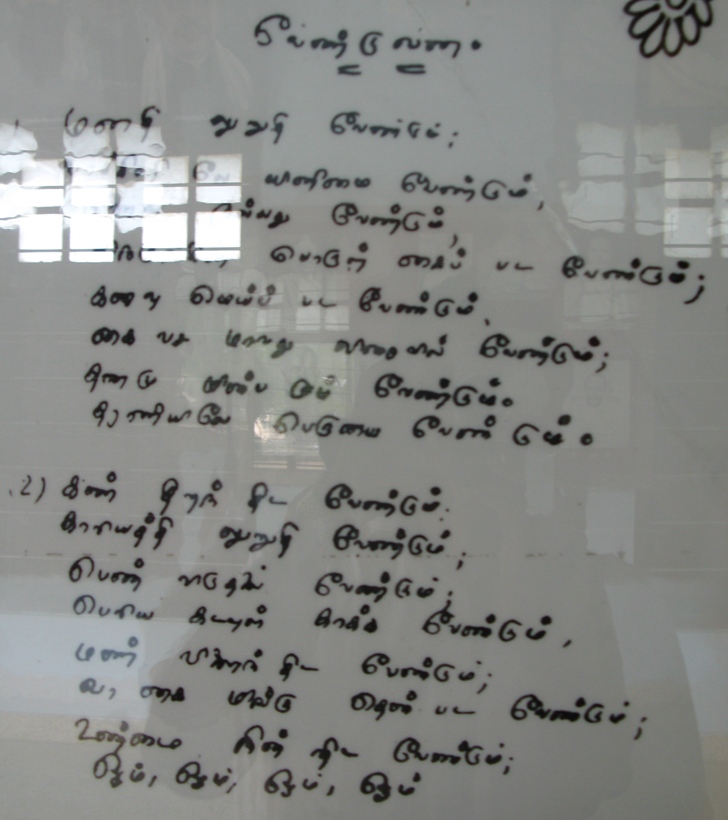 வேண்டுவன.
1. மனதி லுறுதி வேண்டும்;
லே யினிமை வேண்டும்,
நல்லது வேண்டும்,
பொருள் கைப் பட வேண்டும்;
கனவு மெய்ப் பட வேண்டும்,
கை வச மாவது விரைவில் வேண்டும்;
தனமு மின்ப மும் வேண்டும்.
தரணியிலே பெருமை வேண் டும்.
2) கண் திறந் திட வேண்டும்.
காரியத்தி லுறுதி வேண்டும்;
பெண் விடுதலை வேண்டும்;
பெரிய கடவுள் காக்க வேண்டும்,
மண் பயனுற வேண்டும்;
வா கை மிங்கு தென் பட வேண்டும்;
உண்மை நின் றிட வேண்டும்;
ஓம், ஓம், ஓம், ஓம்